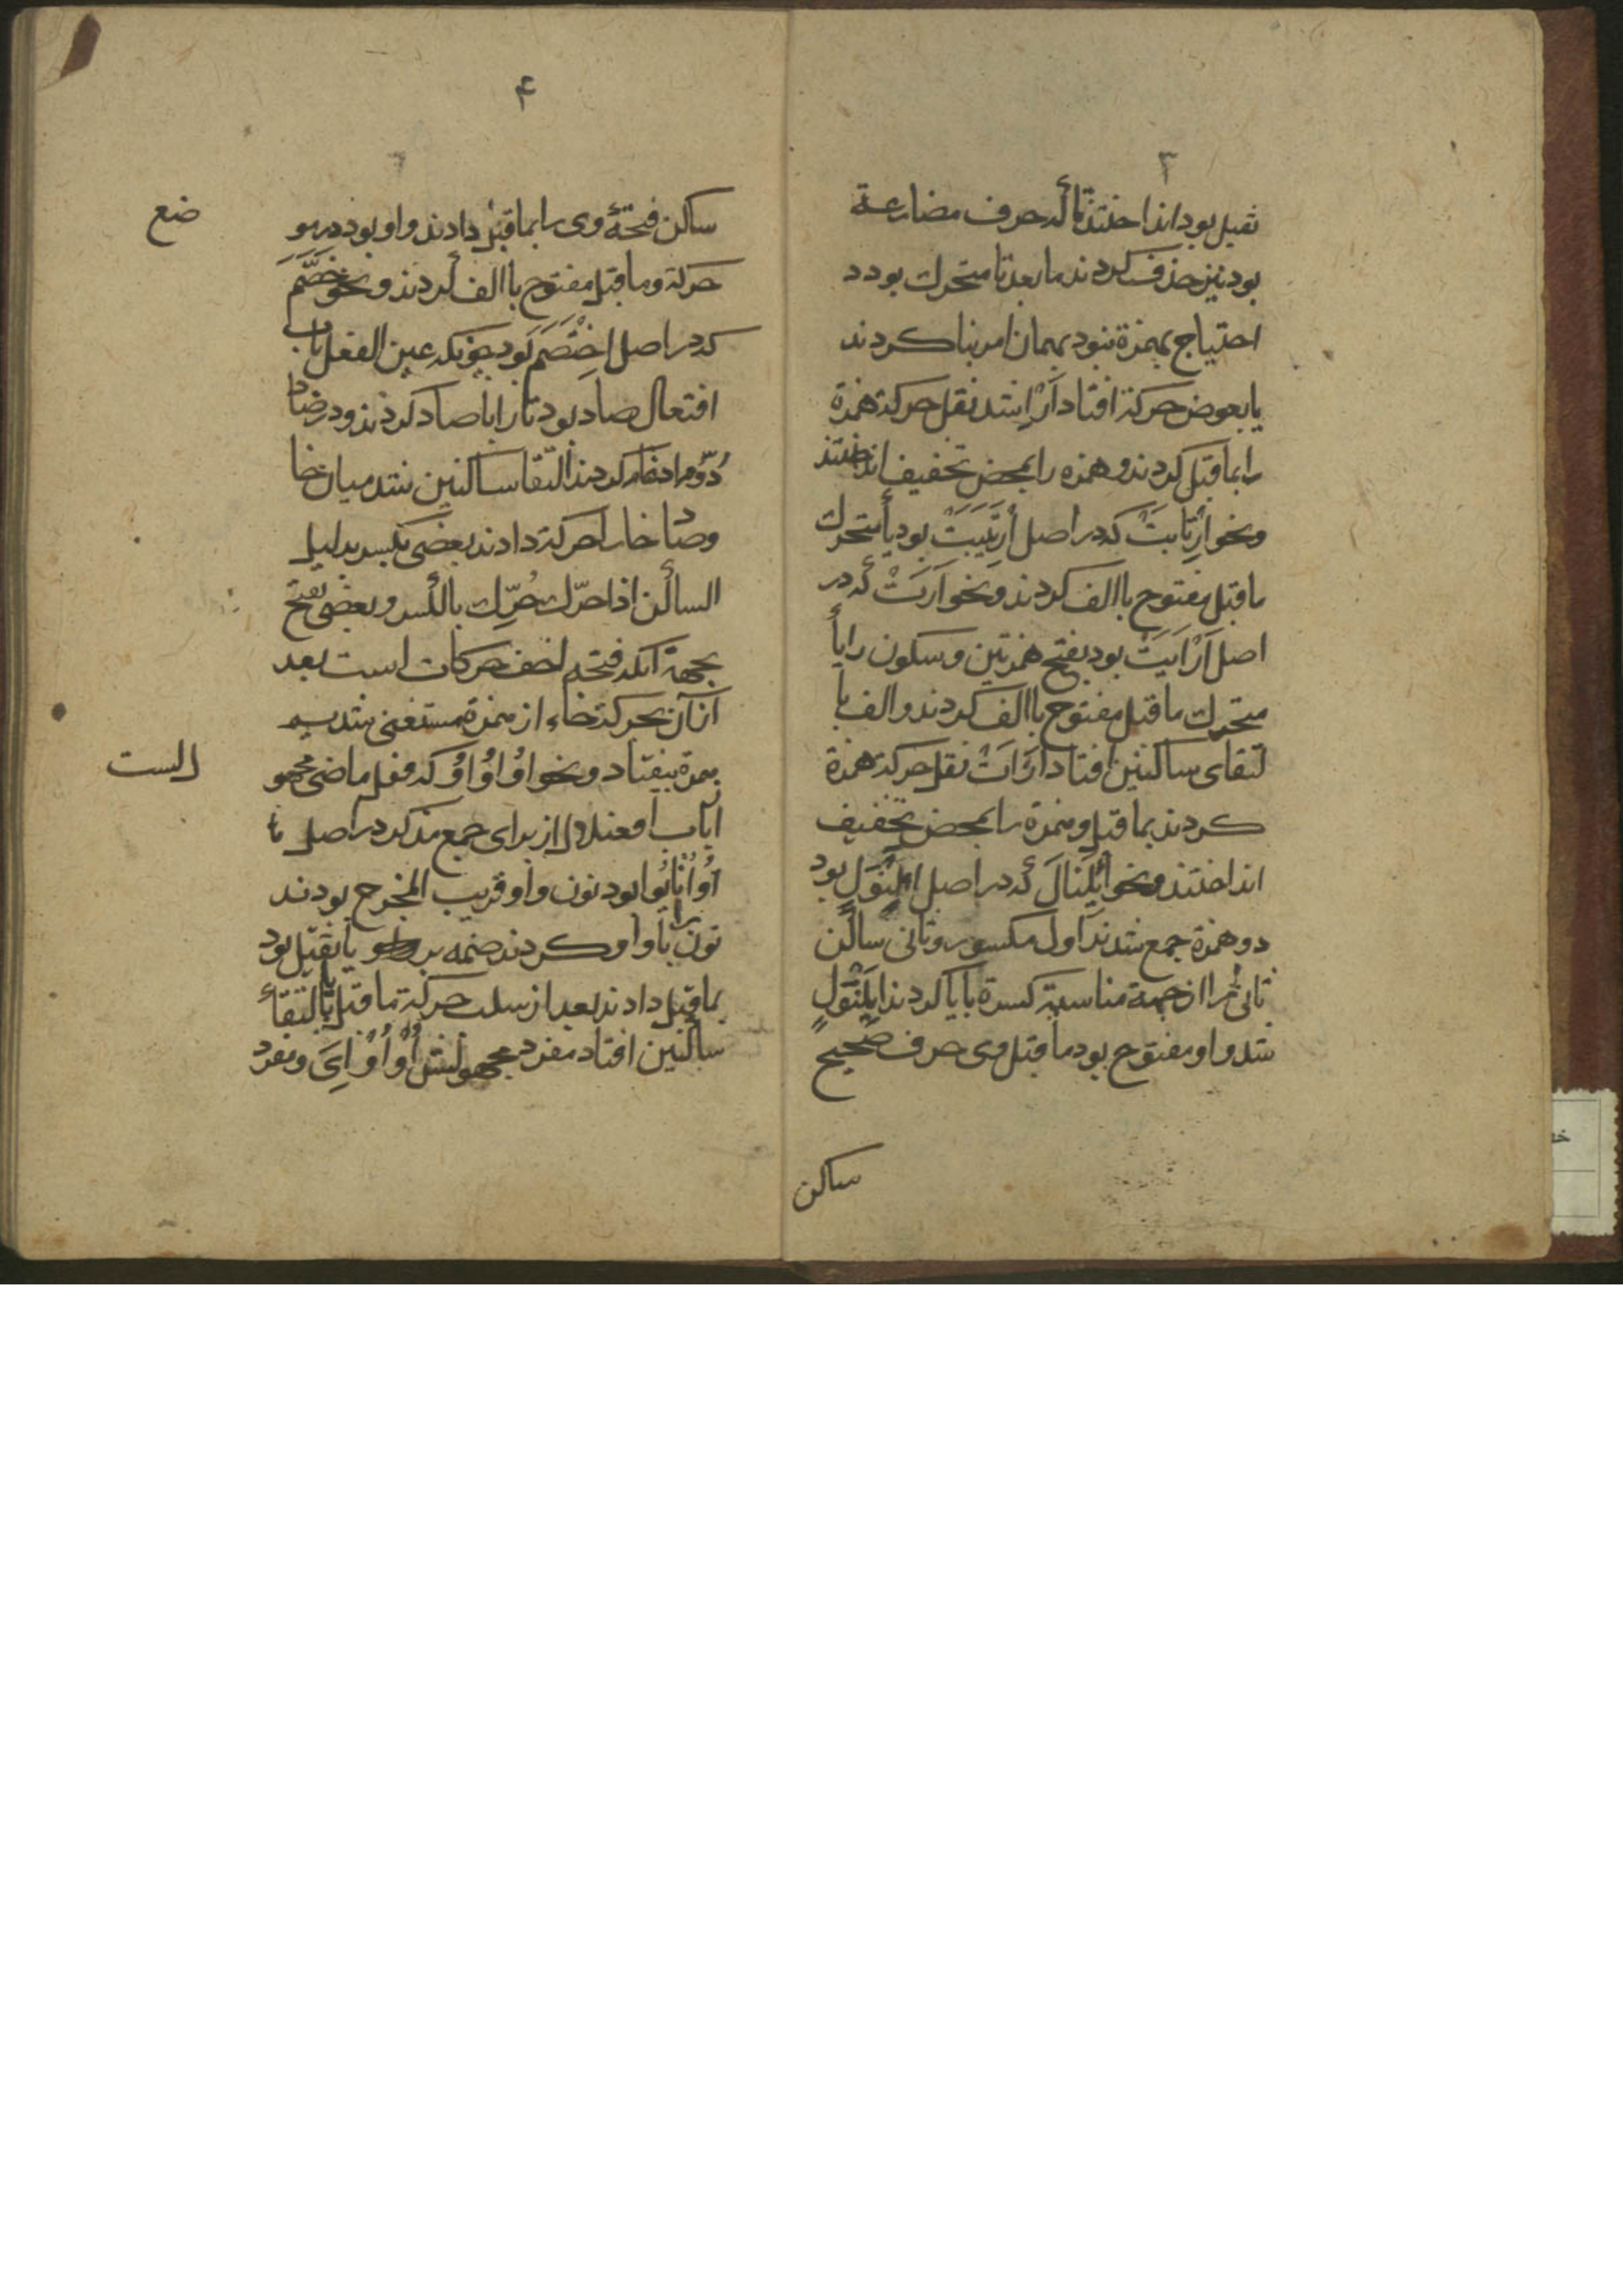 ۳
ثقیل بود انداختند تا که حرف مضارعة
بود نیز حذف کردند ما بعد تا متحرك بود د
احتیاج بهمزة نبود بهمان امر بنا کردند
یا بعوض حرکة افتاد اَرْاِ شد نقل حرکة همزة
را بماقبل کردند و همزه را بمحض تخفیف انداختند
و نحو اِرْتَابَتْ که در اصل اِرْتَیَبَتْ بود یا متحرك
ماقبل مفتوح با الف کردند و نحو اَرَتْ که در
اصل اَرْاَیَتْ بود بفتح همزتین و سکون را یا
متحرك ماقبل مفتوح با الف کردند و الف با
لتقای ساکنین افتاد اَرْاَتْ نقل حرکة همزة
کردند بماقبل و همزة را بمحض تخفیف
انداختند و نحو ایلَنالَ که در اصل بود
دو همزة جمع شدند اول مکسور و ثانی ساکن
ثانی را از جهة مناسبة کسرة با یا کردند ایلَنْوَلِ
شد واو مفتوح بود ماقبل وی حرف صحیح
ساکن
۴
ساکن فتحۀ وی را بماقبل دادند واو بود در مو
ضع
حرکة و ماقبل مفتوح با الف کردند و نحو خَصَّمَ
که در اصل اِخْتَصَمَ بود چونکه عین الفعل باب
افتعال صاد بود تا را با صاد کردند و در صاد
دوّم ادغام کردند التقا ساکنین شد میان خا
و صاد خا را حرکة دادند بعضی بکسر بدلیل
الساکن اذا حرّك حُرِّك بالکسر و بعضی بفتح
بجهة آنکه فتحه اخف حرکات است بعد
از آن بحرکة خاء از همزة مستغنی شدیم
همزة بیفتاد و نحو اوُاوُاوُ که فعل ماضی مجهو
الست
از باب افعنلال از برای جمع مذکر در اصل
بود نون واو قریب المخرج بودند
نون را با واو کردند ضمه بر یا ثقیل بود
بماقبل دادند بعد از سلب حرکة ماقبل یا بالتقاء
ساکنین افتاد مفرد مجهولش اُوْاُوْاِیَ و مفرد